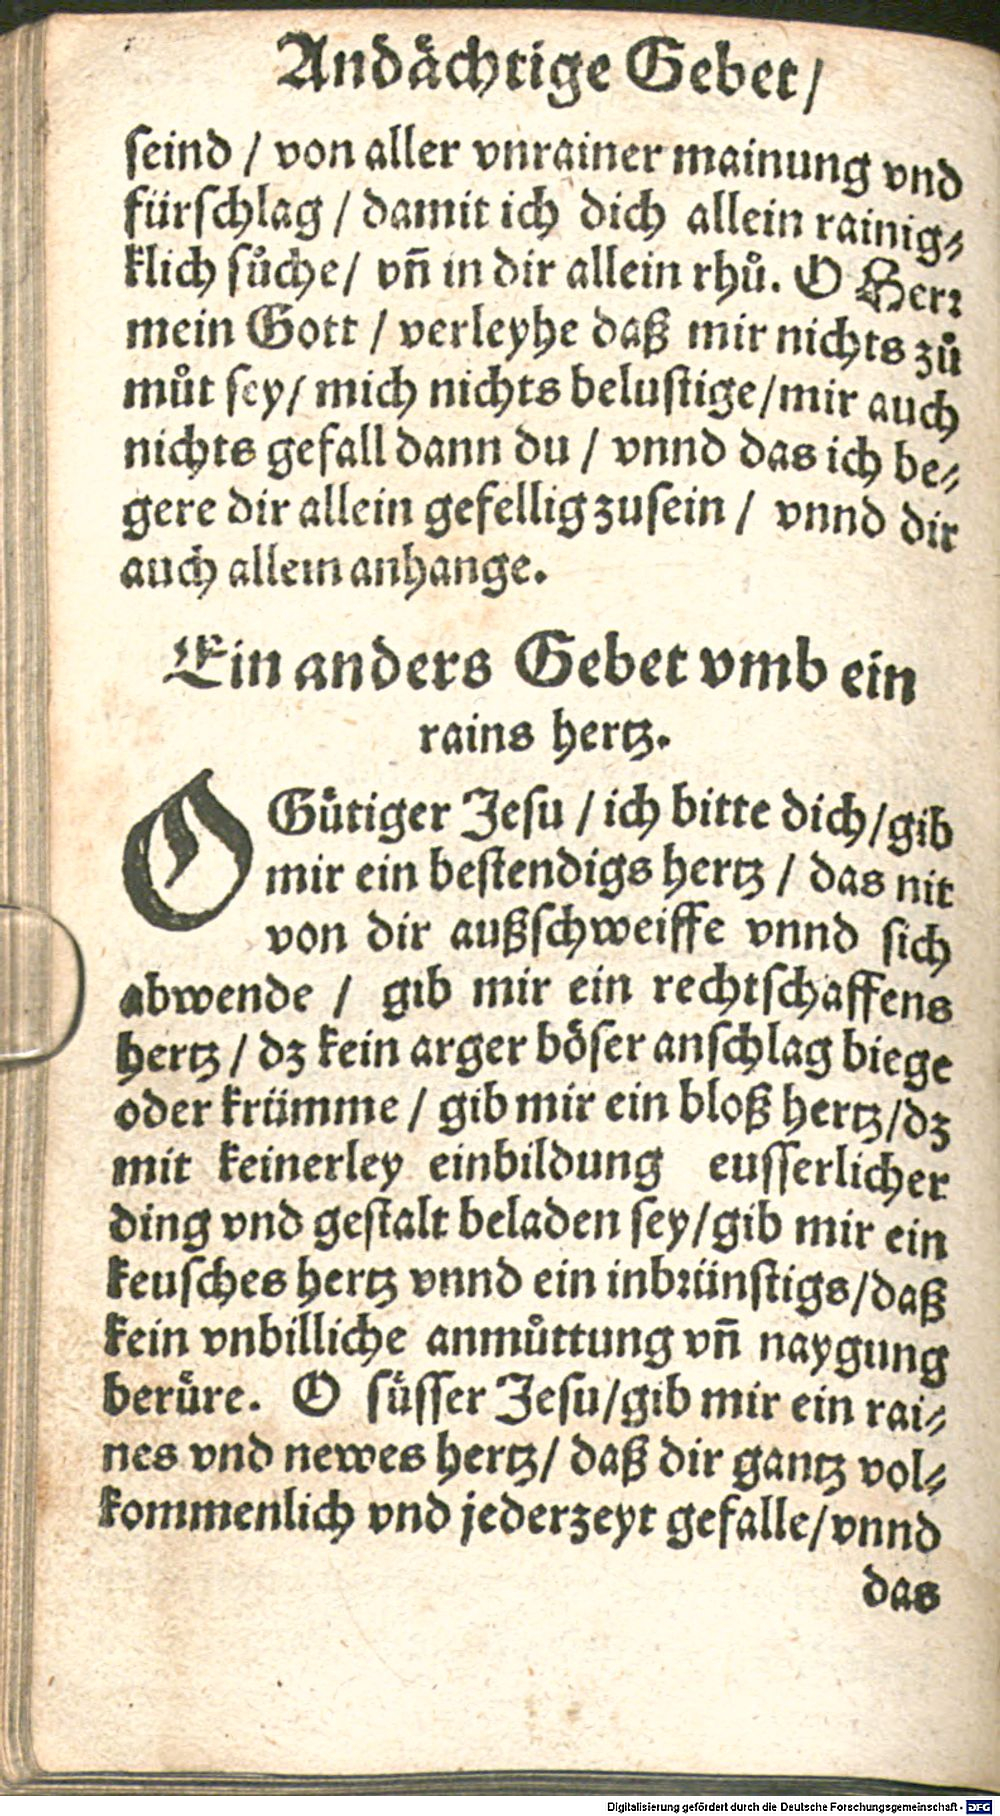 Andaͤchtige Gebet /
ſeind / von aller vnrainer mainung vnd
fürſchlag / damit ich dich allein rainig⸗
klich ſuͦche / vn̄ in dir allein rhuͦ. O Herꝛ
mein Gott / verleyhe daß mir nichts zuͦ
muͦt ſey / mich nichts beluſtige / mir auch
nichts gefall dann du / vnnd das ich be⸗
gere dir allein gefellig zuſein / vnnd dir
auch allein anhange.
Ein anders Gebet vmb ein
rains hertz.
O Guͤtiger Jeſu / ich bitte dich / gib
mir ein beſtendigs hertz / das nit
von dir außſchweiffe vnnd ſich
abwende / gib mir ein rechtſchaffens
hertz / dz kein arger boͤſer anſchlag biege
oder krümme / gib mir ein bloß hertz / dz
mit keinerley einbildung euſſerlicher
ding vnd geſtalt beladen ſey / gib mir ein
keuſches hertz vnnd ein inbꝛünſtigs / daß
kein vnbilliche anmuͦttung vn̄ naygung
beruͤre. O ſuͤſſer Jeſu / gib mir ein rai⸗
nes vnd newes hertz / daß dir gantz vol⸗
kommenlich vnd jederzeyt gefalle / vnnd
das
Digitalisierung gefördert durch die Deutsche Forschungsgemeinschaft - DFG